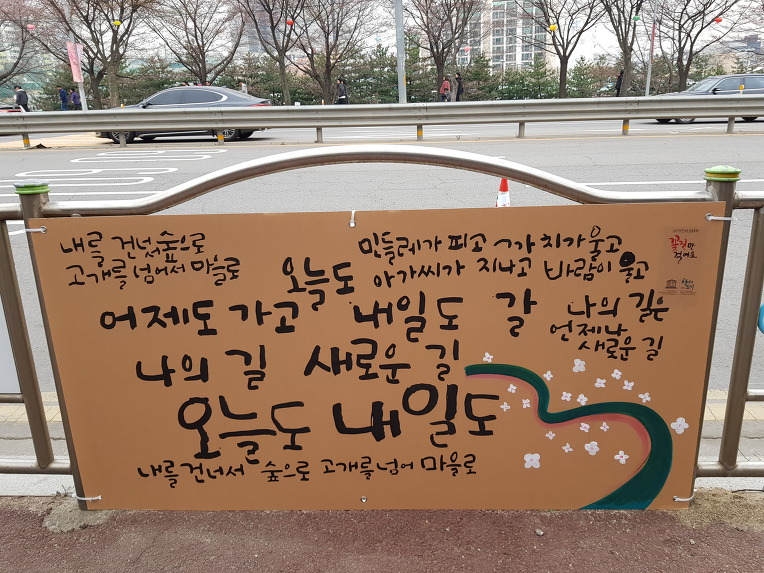 내를 건너서 숲으로
고개를 넘어서 마을로
민들레가 피고 까치가 울고
아가씨가 지나고 바람이 울고
오늘도
어제도 가고 내일도 갈
나의 길은
언제나
새로운 길
나의 길 새로운 길
오늘도 내일도
내를 건너서 숲으로 고개를 넘어 마을로
꽃길만
걸어요